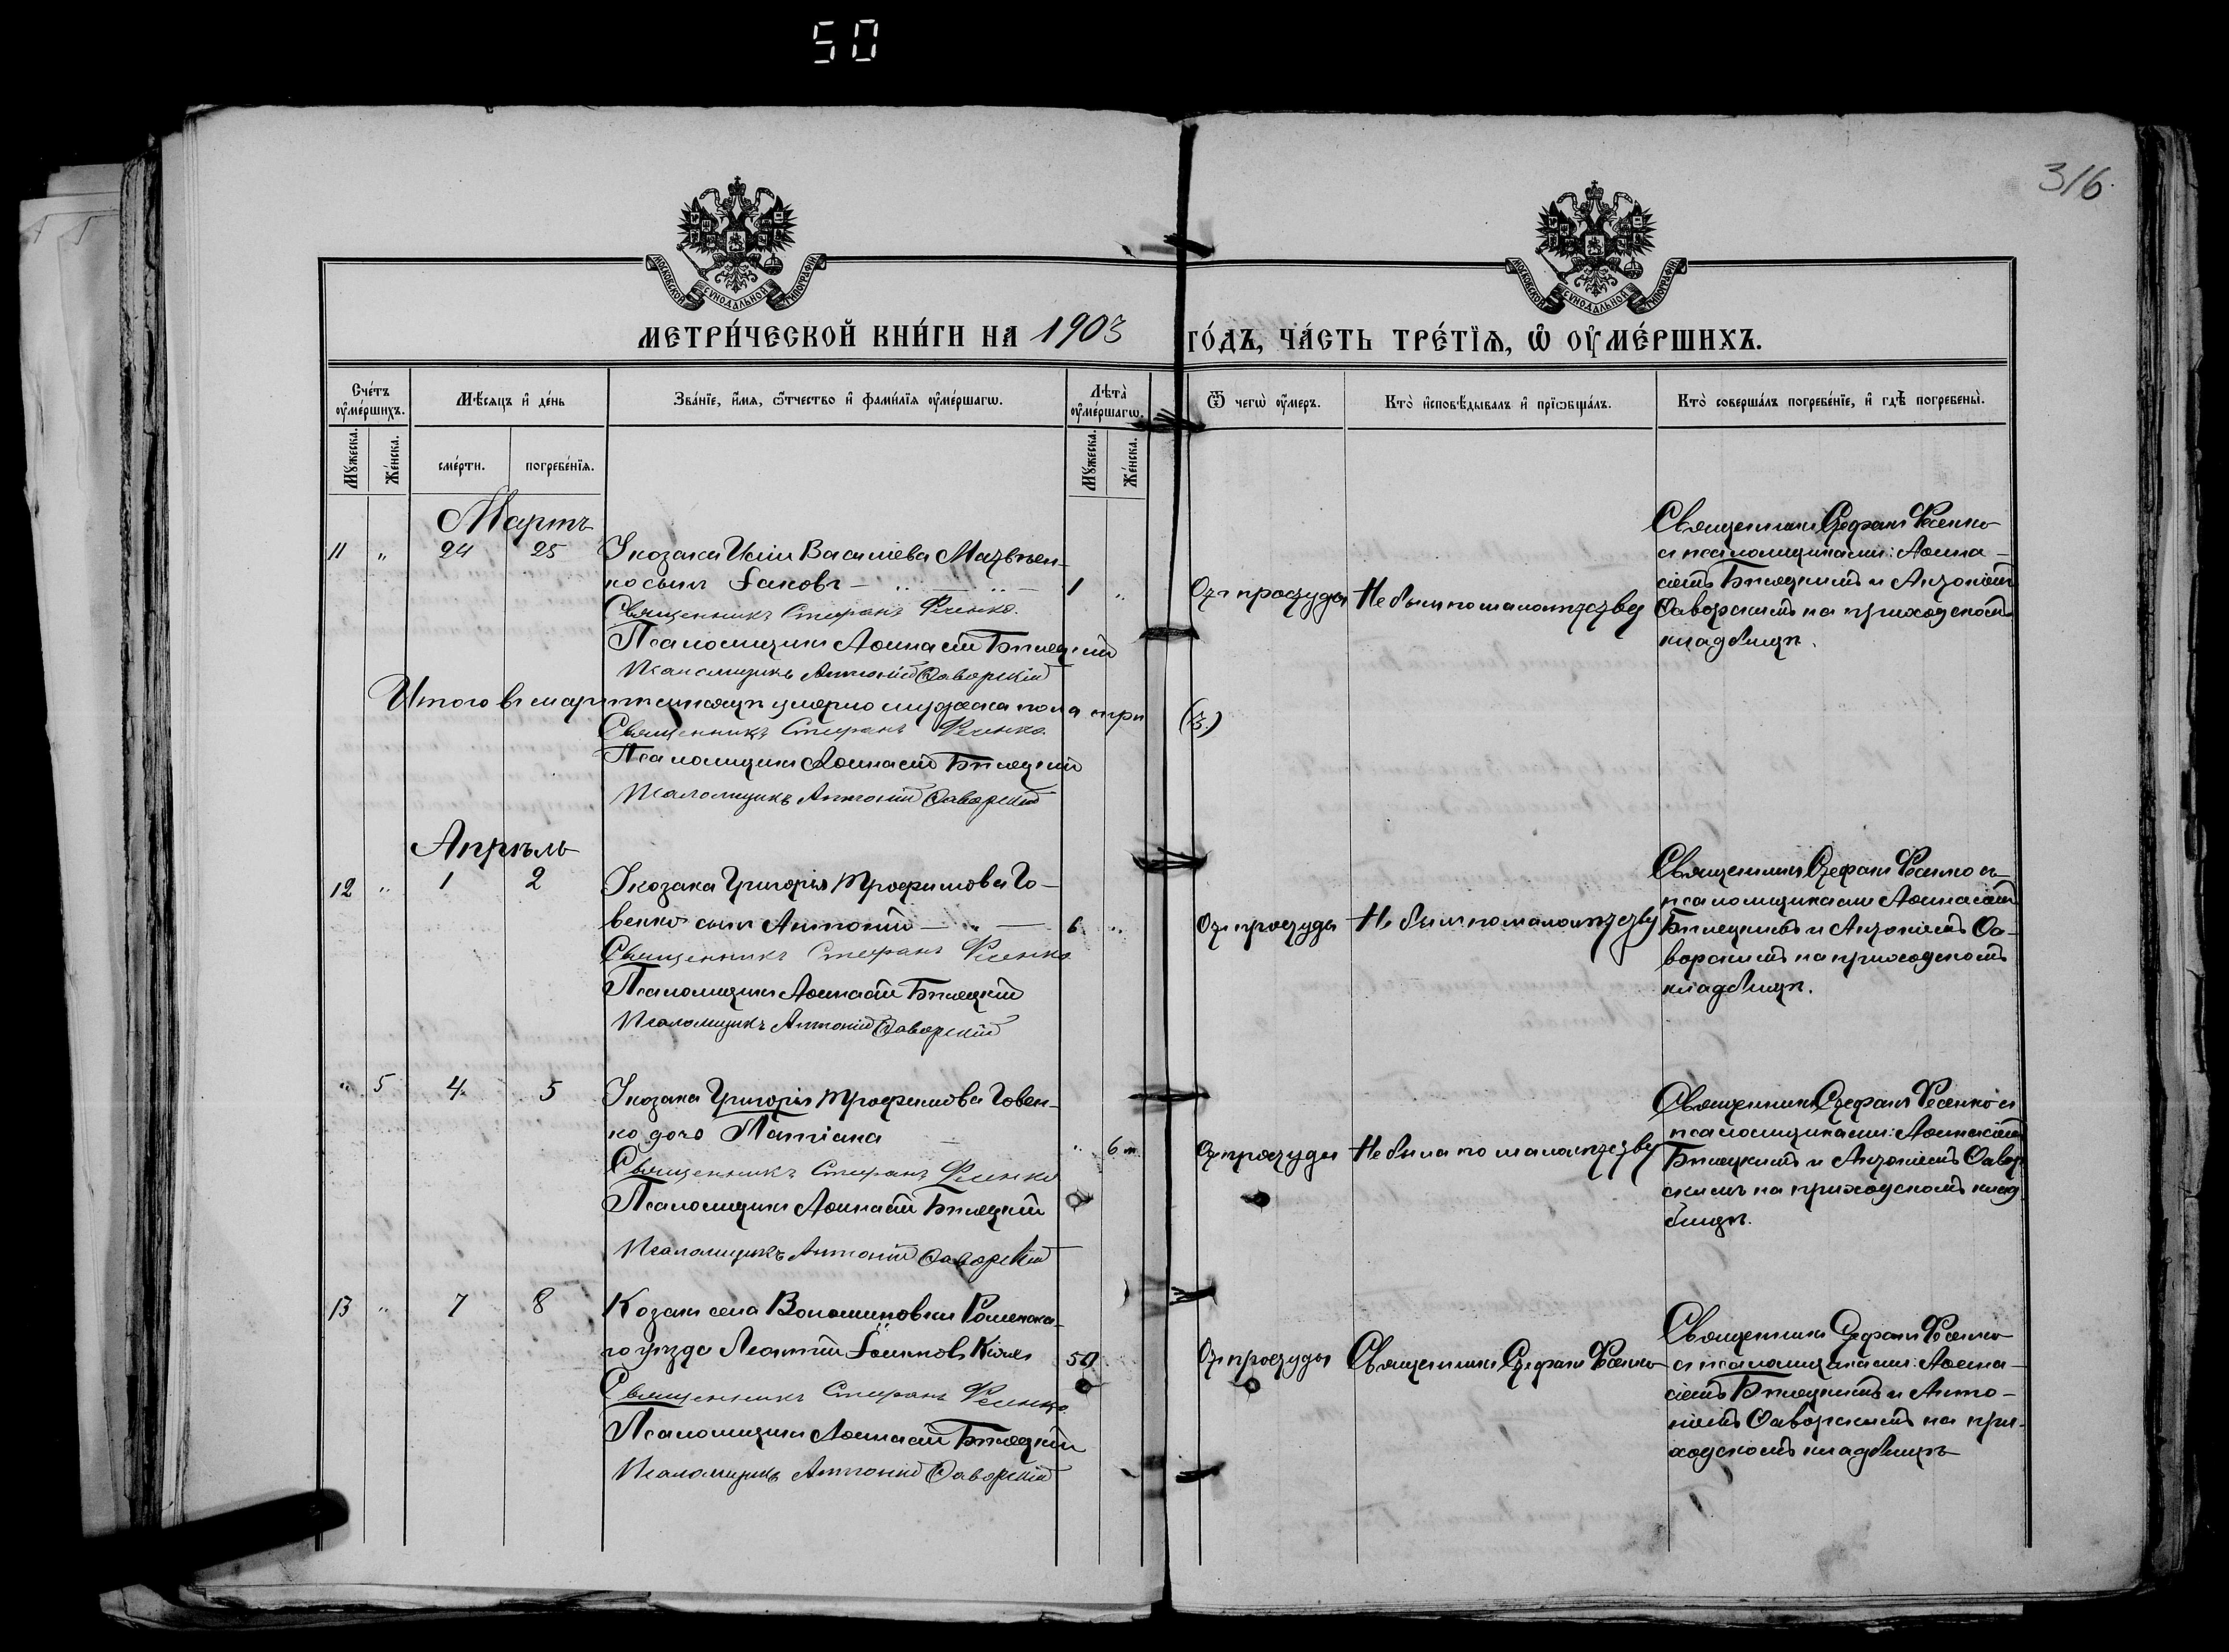 50
316.
МОСКОВСКОЙ СѴНОДАЛЬНОЙ ТИПОГРАФІИ
МОСКОВСКОЙ СѴНОДАЛЬНОЙ ТИПОГРАФІИ
МЕТРИ́ЧЕСКОЙ КНИ́ГИ НА 1903 ГО́ДЪ, ЧА́СТЬ ТРЕ́ТЇѦ, Ѽ ОУ҆МЕ́РШИХЪ.
Сче́тъ оу҆ме́ршихъ.
Мѣ́сѧцъ и҆ де́нь
Зва́нїе, и҆́мѧ, ѻ҆́тчество и҆ фами́лїѧ оу҆ме́ршагѡ.
Лѣта̀ оу҆ме́ршагѡ.
Ѿ чегѡ̀ оу҆́меръ.
Кто̀ и҆сповѣ́дывалъ и҆ прїѡбща́лъ.
Кто̀ соверша́лъ погребе́нїе, и҆ гдѣ̀ погребены̀.
Мꙋ́жеска.
Же́нска.
сме́рти.
погребе́нїѧ.
Мꙋ́жеска.
Же́нска.
Мартъ
11 " 24 25
козака Василіева
ко сынъ Іаковъ 1 "
Священникъ Стефанъ Фесенко.
Псаломщикъ Аѳанасій Бѣлецкій
Псаломщикъ Антоній Ѳаворскій
Отъ простуды
Не былъ по малолѣтству
Священникъ Стефанъ Фесенко
съ псаломщиками: Аѳана-
сіемъ Бѣлецкимъ и Антоніемъ
Ѳаворскимъ на приходскомъ
кладбищѣ.
Итого въ мартѣ мѣсяцѣ умерло мужеска пола три (3)
Священникъ Стефанъ Фесенко
Псаломщикъ Аѳанасій Бѣлецкій
Псаломщикъ Антоній Ѳаворскій
Апрѣль
12 " 1 2
козака Григорія Трофимова Го-
венко сынъ Антоній 6 "
Священникъ Стефанъ Фесенко
Псаломщикъ Аѳанасій Бѣлецкій
Псаломщикъ Антоній Ѳаворскій
Отъ простуды
Не былъ по малолѣтству
Священникъ Стефанъ Фесенко съ
псаломщиками Аѳанасіемъ
Бѣлецкимъ и Антоніемъ Ѳа-
ворскимъ на приходскомъ
кладбищѣ.
" 5 4 5
козака Григорія Трофимова Говен-
ко дочь Татіана " 6 м.
Священникъ Стефанъ Фесенко
Псаломщикъ Аѳанасій Бѣлецкій
Псаломщикъ Антоній Ѳаворскій
Отъ простуды
Не была по малолѣтству
Священникъ Стефанъ Фесенко съ
псаломщиками: Аѳанасіемъ
Бѣлецкимъ и Антоніемъ Ѳавор
скимъ на приходскомъ клад
бищѣ.
13 " 7 8
Козакъ села Волошиновки Роменска-
го уѣзда Леонтій 50
Священникъ Стефанъ Фесенко
Псаломщикъ Аѳанасій Бѣлецкій
Псаломщикъ Антоній Ѳаворскій
Отъ простуды
Священникъ Стефанъ Фесенко
Священникъ Стефанъ Фесенко
съ псаломщиками: Аѳана-
сіемъ Бѣлецкимъ и Анто-
ніемъ Ѳаворскимъ на при-
ходскомъ кладбищѣ